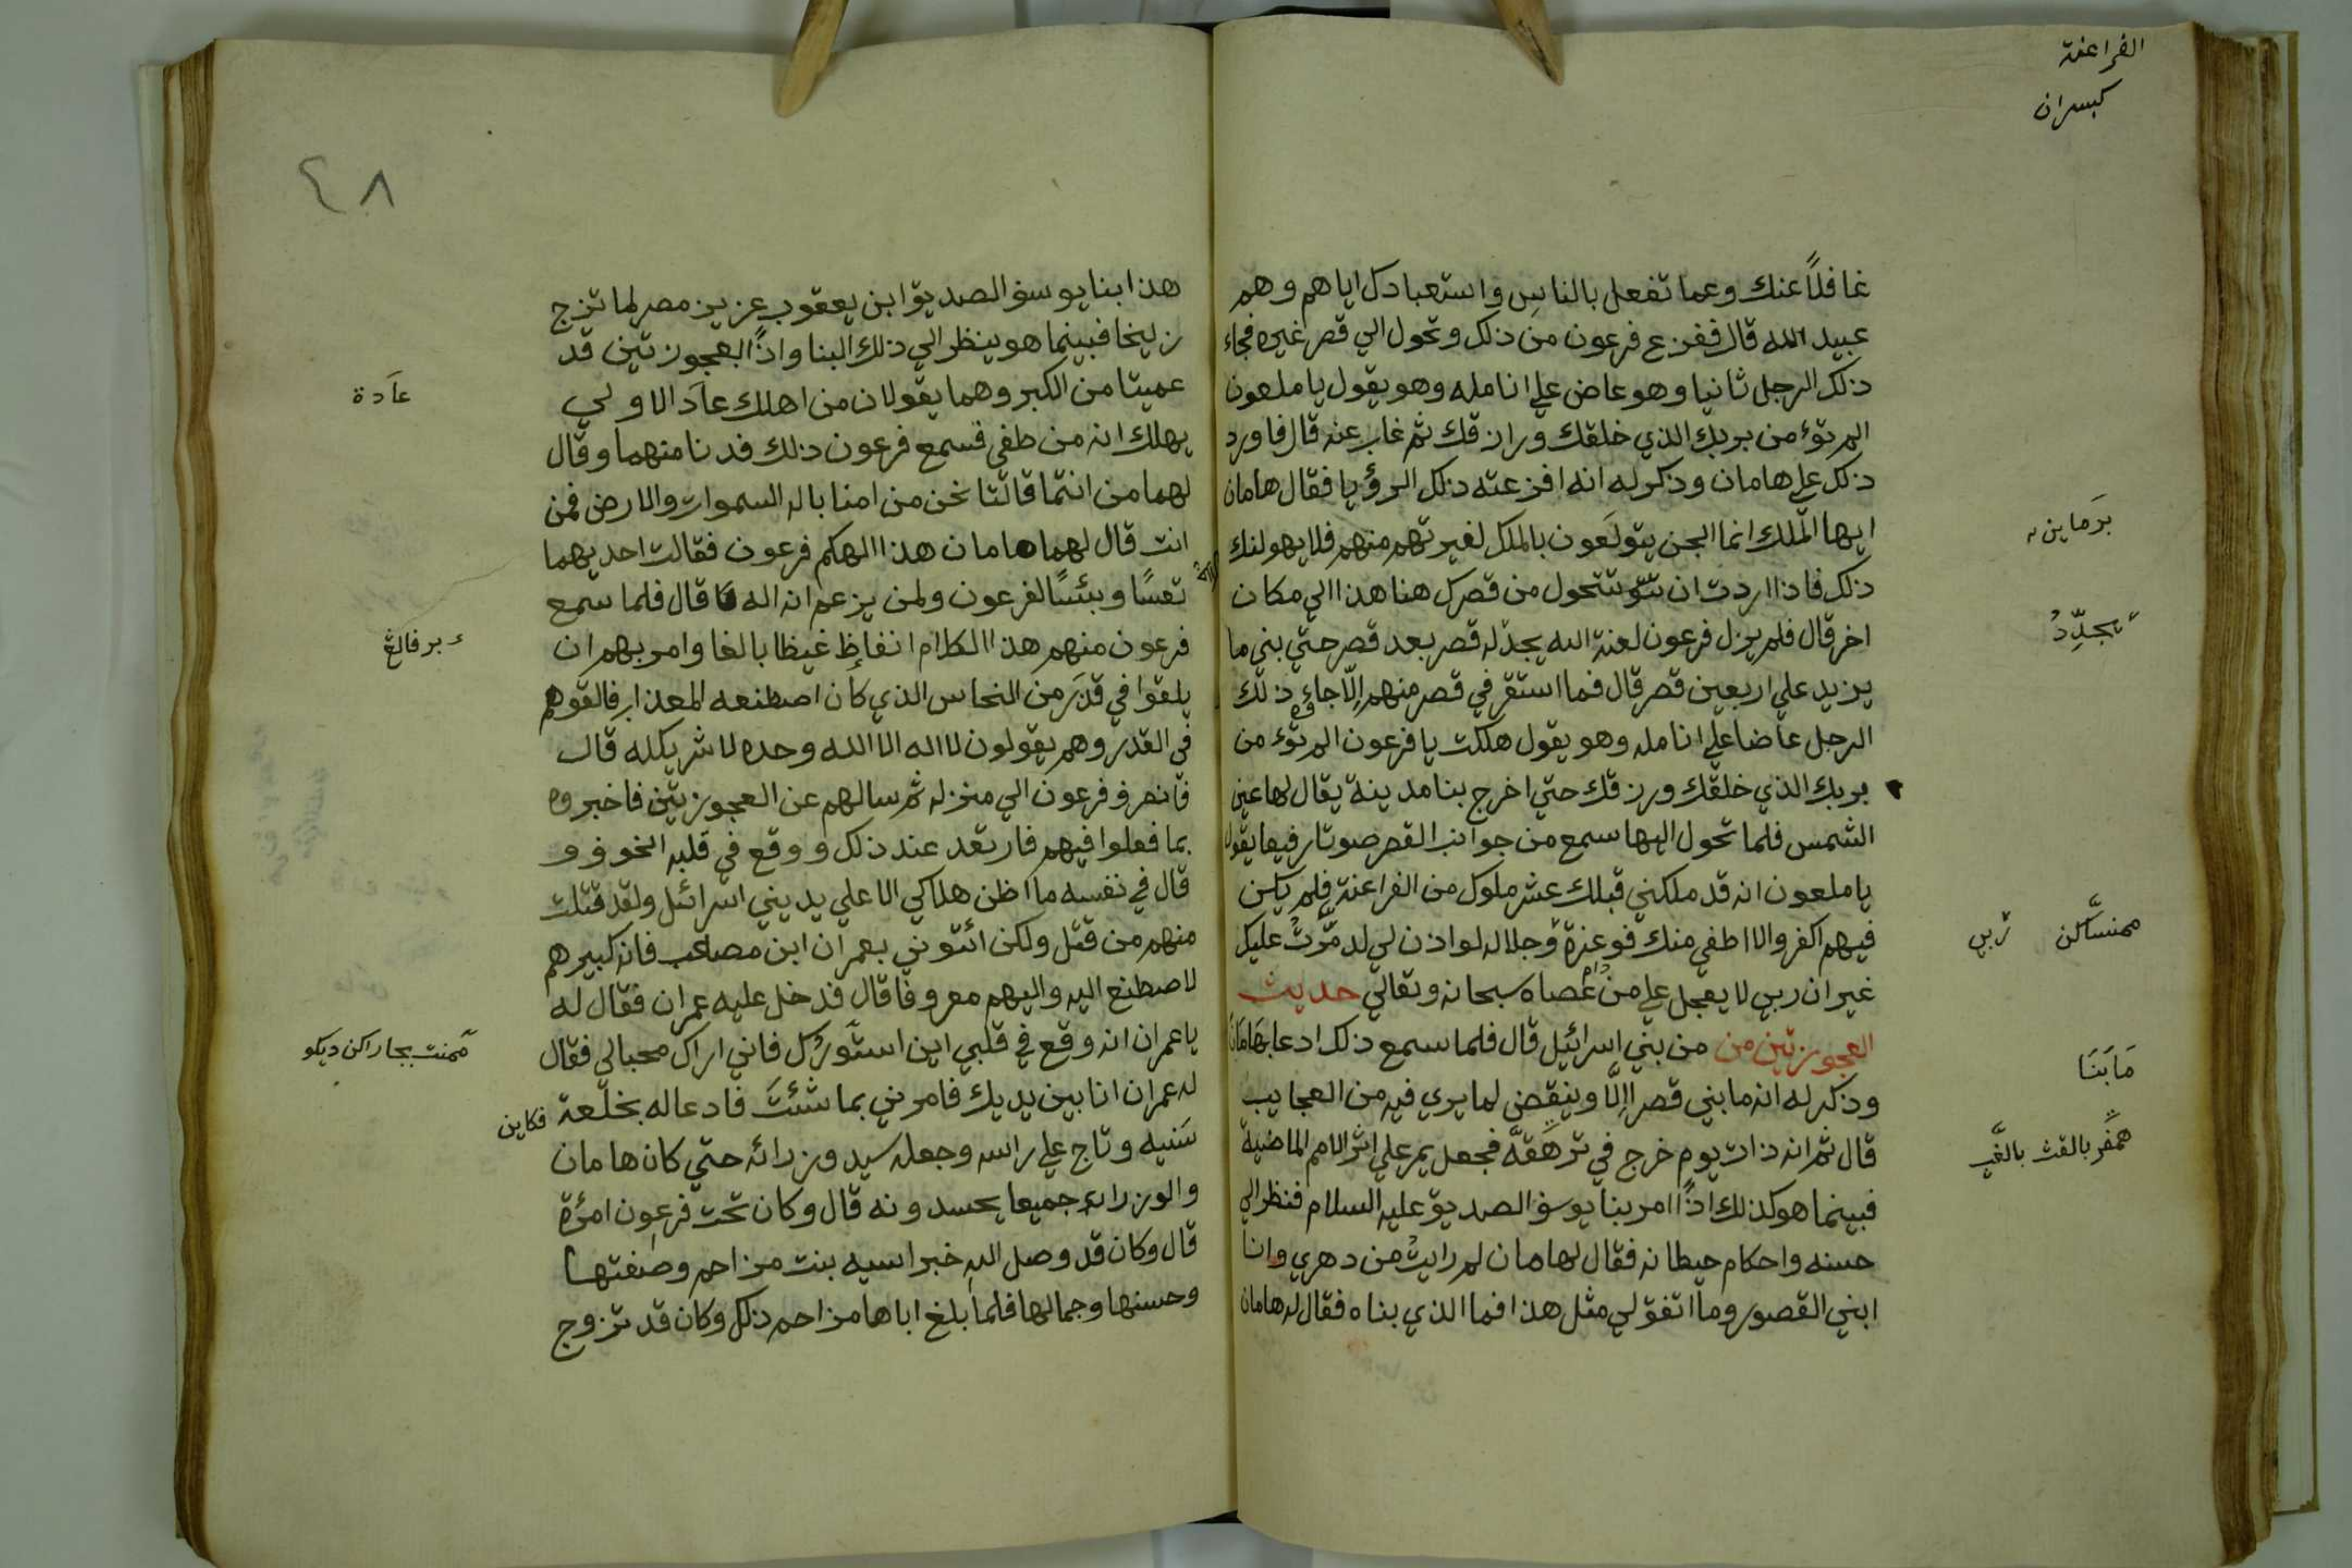 الفراعنة
كبسران
غافلاً عنك وعما تفعل بالناس واستعبادك اياهم وهم
عبيد الله قال ففزع فرعون من ذلك وتحول الي قصر غيره فجاء
ذلك الرجل ثانيا وهو عاض علي انامله وهو يقول يا ملعون
الم تؤمن بربك الذي خلقك ورازقك ثم غاب عنه قال فاورد
ذلك علي هامان وذكر له انه افزعته ذلك الرؤيا فقال هامان
ايها الملك انما الجن يتولعون بالملك لغيرتهم منهم فلا يهولنك
ذلك فاذا اردت ان تتحول من قصرك هنا هذا الي مكان
اخر قال فلم يزل فرعون لعنة الله يجد له قصر بعد قصر حتي بني ما
يزيد علي اربعين قصر قال فما استقر في قصر منهم الّا جاء ذلك
الرجل عاضا علي انامله وهو يقول هلكت يا فرعون الم تؤمن
بربك الذي خلقك ورزقك حتي اخرج بنا مدينة يقال لها عين
الشمس فلما تحول اليها سمع من جوانب القصر صوتا رفيعا يقول
يا ملعون انه قد ملكني قبلك عشر ملوك من الفراعنة فلم يكن
فيهم اكفر والا اطفي منك فوعزة وجلاله لو اذن لي لدمرت عليك
غير ان ربي لا يعجل علي من عصاه سبحانه وتعالي حديث
العجوزتين من من بني اسرائيل قال فلما سمع ذلك ادعا بهامان
وذكر له انه ما بني قصر اإلّا وينقض لما يري فيه من العجايب
قال ثم انه ذات يوم خرج في ترهقة فجعل يمر علي اثر الامم الماضية
فبينما هو كذلك اذًا امر بنا يوسف الصديق عليه السلام فنظر الي
حسنه واحكام حيطانه فقال لهامان لم رايت من دهري وانا
ابني القصور وما اتفق لي مثل هذا فما الذي بناه فقال له هامان
يجدّدُ
ربي
مَا بَنَا
٤٨
هذا ابنا يوسف الصديق ابن يعقوب عزيز مصر لما تزج
زليخا فبينما هو ينظر الي ذلك البنا واذًا العجوزتين قد
عميتا من الكبر وهما يقولان من اهلك عاد الاولي
يهلك انه من طفي فسمع فرعون ذلك فدنا منهما وقال
لهما من انتما قالتا نحن من امنا باله السموات والارض فمن
انت قال لهما هامان هذا الهكم فرعون فقالت احديهما
تعسًا وبئسًا لفرعون ولمن يزعم انه اله قال فلما سمع
فرعون منهم هذا الكلام انفاظ غيظا بالغا وامر بهم ان
يلقوا في قدر من النحاس الذي كان اصطنعه للعذاب فالقوهم
في القدر وهم يقولون لا اله الا الله وحده لا شريك له قال
فانصرف فرعون الي منزله ثم سالهم عن العجوزتين فاخبروه
بما فعلوا فيهم فارتعد عند ذلك ووقع في قلبه الخوف و
قال في نفسه ما اظن هلاكي الا علي يد بني اسرائيل ولقد قتلت
منهم من قتل ولكن ائتوني بعمران ابن مصاعب فانه كبيرهم
لاصطنع اليه واليهم معروفا قال فدخل عليه عمران فقال له
يا عمران انه وقع في قلبي اين استورك فاني اراك محبا لي فقال
له عمران انا بين يديك فامرني بما شئت فادعا له بخلعة
سنيه وتاج علي راسه وجعله سيد وزرائه حتي كان هامان
والوزراء جميعا يحسدونه قال وكان تحت فرعون امرؤة
قال وكان قد وصل اليه خبر اسيه بنت مزاحم وصفتها
وحسنها وجمالها فلما بلغ اباها مزاحم ذلك وكان قد تزوج
عادة
فكاين